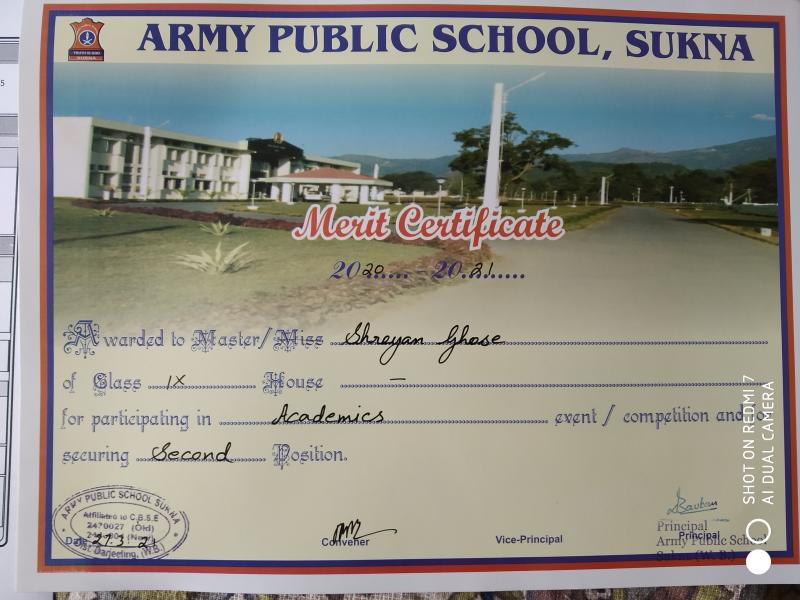 ARMY PUBLIC SCHOOL, SUKNA
SUKNA
Merit Certificate
2020..... - 2021......
Awarded to Master/Miss Shreyan Ghose
of Class IX House –
for participating in Academics event / competition and/or
securing Second Position.
ARMY PUBLIC SCHOOL SUKNA
Affiliated to C.B.S.E
2470027 (Old)
(New)
Dist. Darjeeling, (W.B.)
Date 27.3.21
Convener
Vice-Principal
Principal
Principal
Army Public School
Sukna (W. B.)
SHOT ON REDMI 7
AI DUAL CAMERA